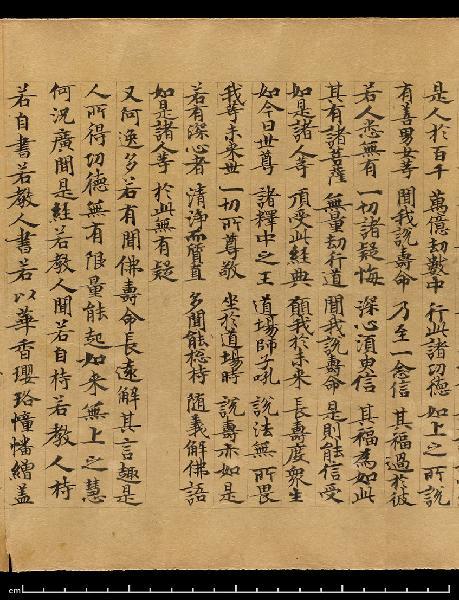 是人於百千 萬億劫數中 行此諸功德 如上之所說
有善男女等 聞我說壽命 乃至一念信 其福過於彼
若人悉無有 一切諸疑悔 深心須臾信 其福為如此
其有諸菩薩 無量劫行道 聞我說壽命 是則能信受
如是諸人等 頂受此經典 願我於未來 長壽度衆生
如今日世尊 諸釋中之王 道場師子吼 說法無所畏
我等未來世 一切所尊敬 坐於道場時 說壽亦如是
若有深心者 清淨而質直 多聞能惣持 隨義解佛語
如是諸人等 於此無有疑
又阿逸多若有聞佛壽命長遠解其言趣是
人所得功德無有限量能起如來無上之慧
何況廣聞是經若教人聞若自持若教人持
若自書若教人書若以華香瓔珞幢幡繒蓋
cm